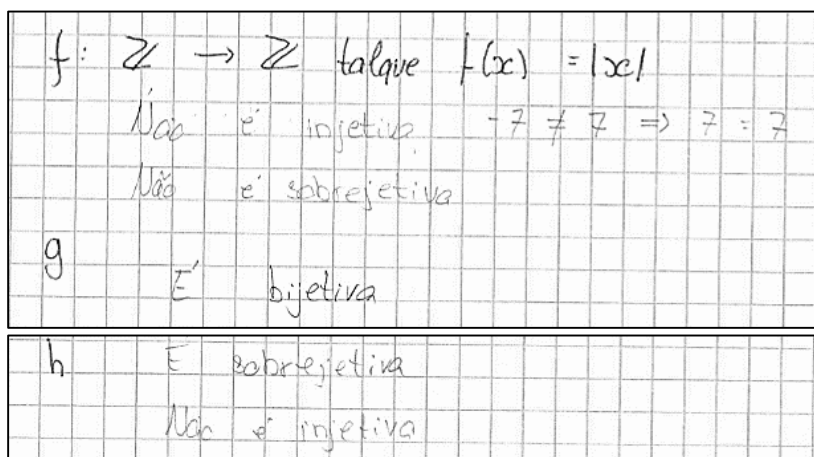 f: ℤ → ℤ talque f(x) = |x|
Não é injetiva. -7 ≠ 7 => 7 = 7
Não é sobrejetiva
g
É bijetiva
h E sobrejetiva
Não é injetiva